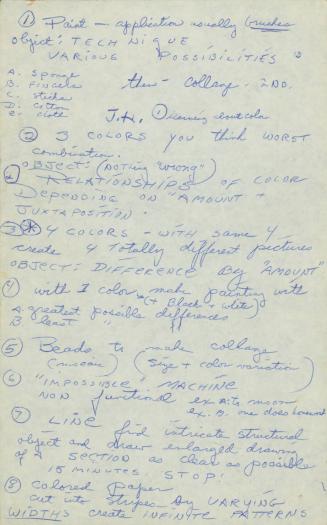 ① Paint — application usually brushes
object: TECHNIQUE
VARIOUS POSSIBILITIES
A. Sponge
B. Fingers then - collage - 2ND.
C. sticks
D. Cotton
E. cloth J.H. ① learning about color
② 3 COLORS YOU think WORST
combination.
OBJECT: (nothing "wrong")
RELATIONSHIPS OF COLOR
Depending on "AMOUNT +
JUXTAPOSITION.
③ 4 COLORS - WITH same 4
create 4 Totally different pictures
OBJECT: DIFFERENCE By "AMOUNT"
④ with 1 color make painting with
(+ Black + white)
A. greatest possible differences
B. least "
⑤ Beads to make collage
(mosaic) (size + color variation)
⑥ "IMPOSSIBLE" MACHINE
NON functional ex A: to moon
ex. B: one does homework
⑦ LINE find intricate structural
object and draw enlarged drawing
of a SECTION as clear as possible
15 MINUTES STOP!
⑧ colored paper
cut into stripes By VARYING
WIDTHS create INFINITE PATTERNS